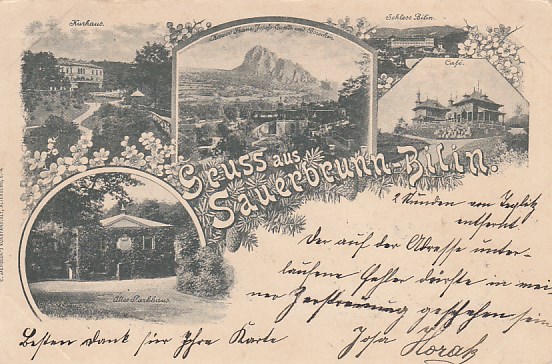 Kurhaus.
Kaiser Franz Josef-Quelle und Borschen
Schloss Bilin.
Café.
Gruss aus
Sauerbrunn-Bilin.
Altes Parkhaus.
2 Stunden von Teplitz
entfernt.
Der auf der Adresse unter-
laufene Fehler dürfte in mei
ner Zerstreuung geschehen sein
Besten Dank für Ihre Karte
Josa Horak